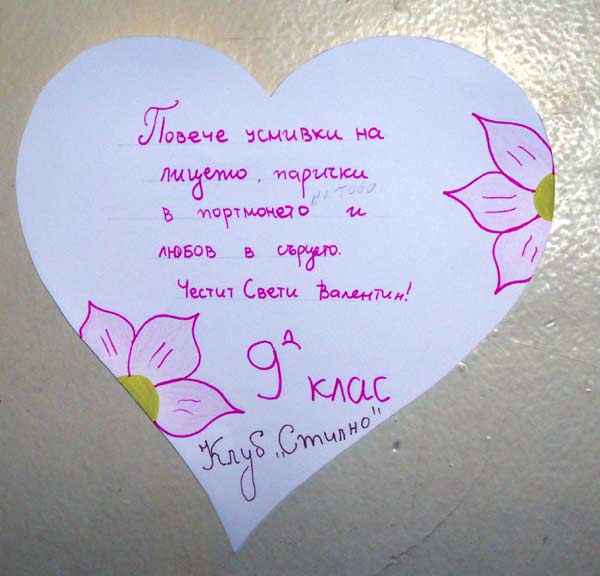 Повече усмивки на
лицето, парички
в портмонето и
любов в сърцето.
Честит Свети Валентин!
9д клас
Клуб „Стилно"